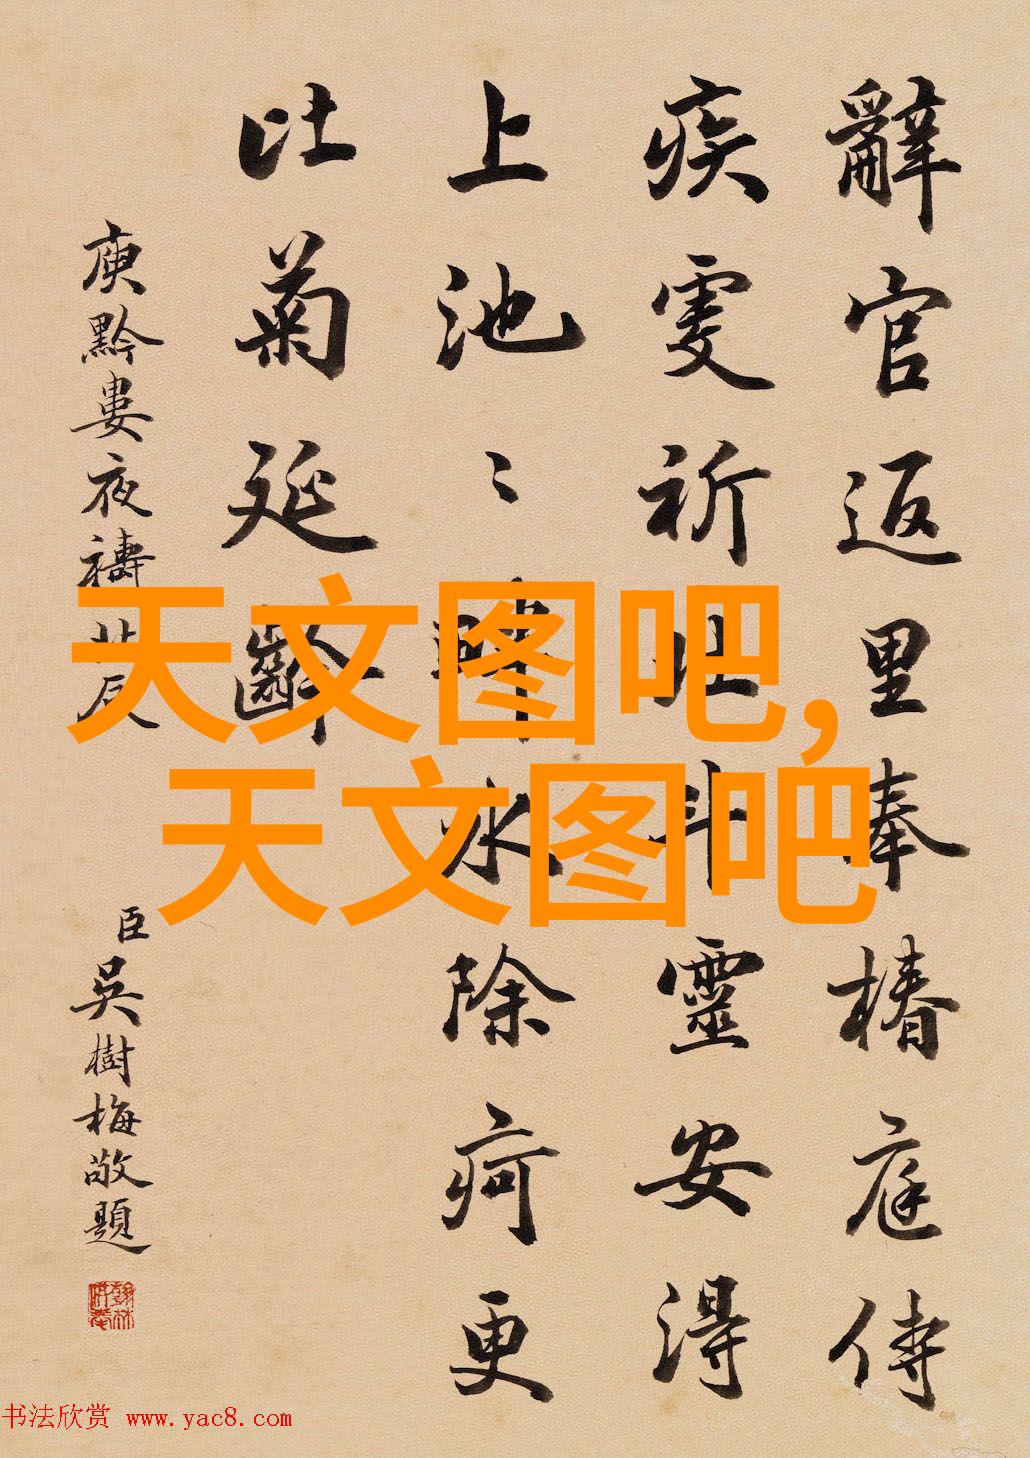 辭官返里奉椿庭侍
疾虔祈北斗靈安得
上池〻畔水除疴更
比菊延齡
庾黔婁夜禱北辰
臣吳樹梅敬題
天文图吧,
天文图吧
书法欣赏 www.yac8.com